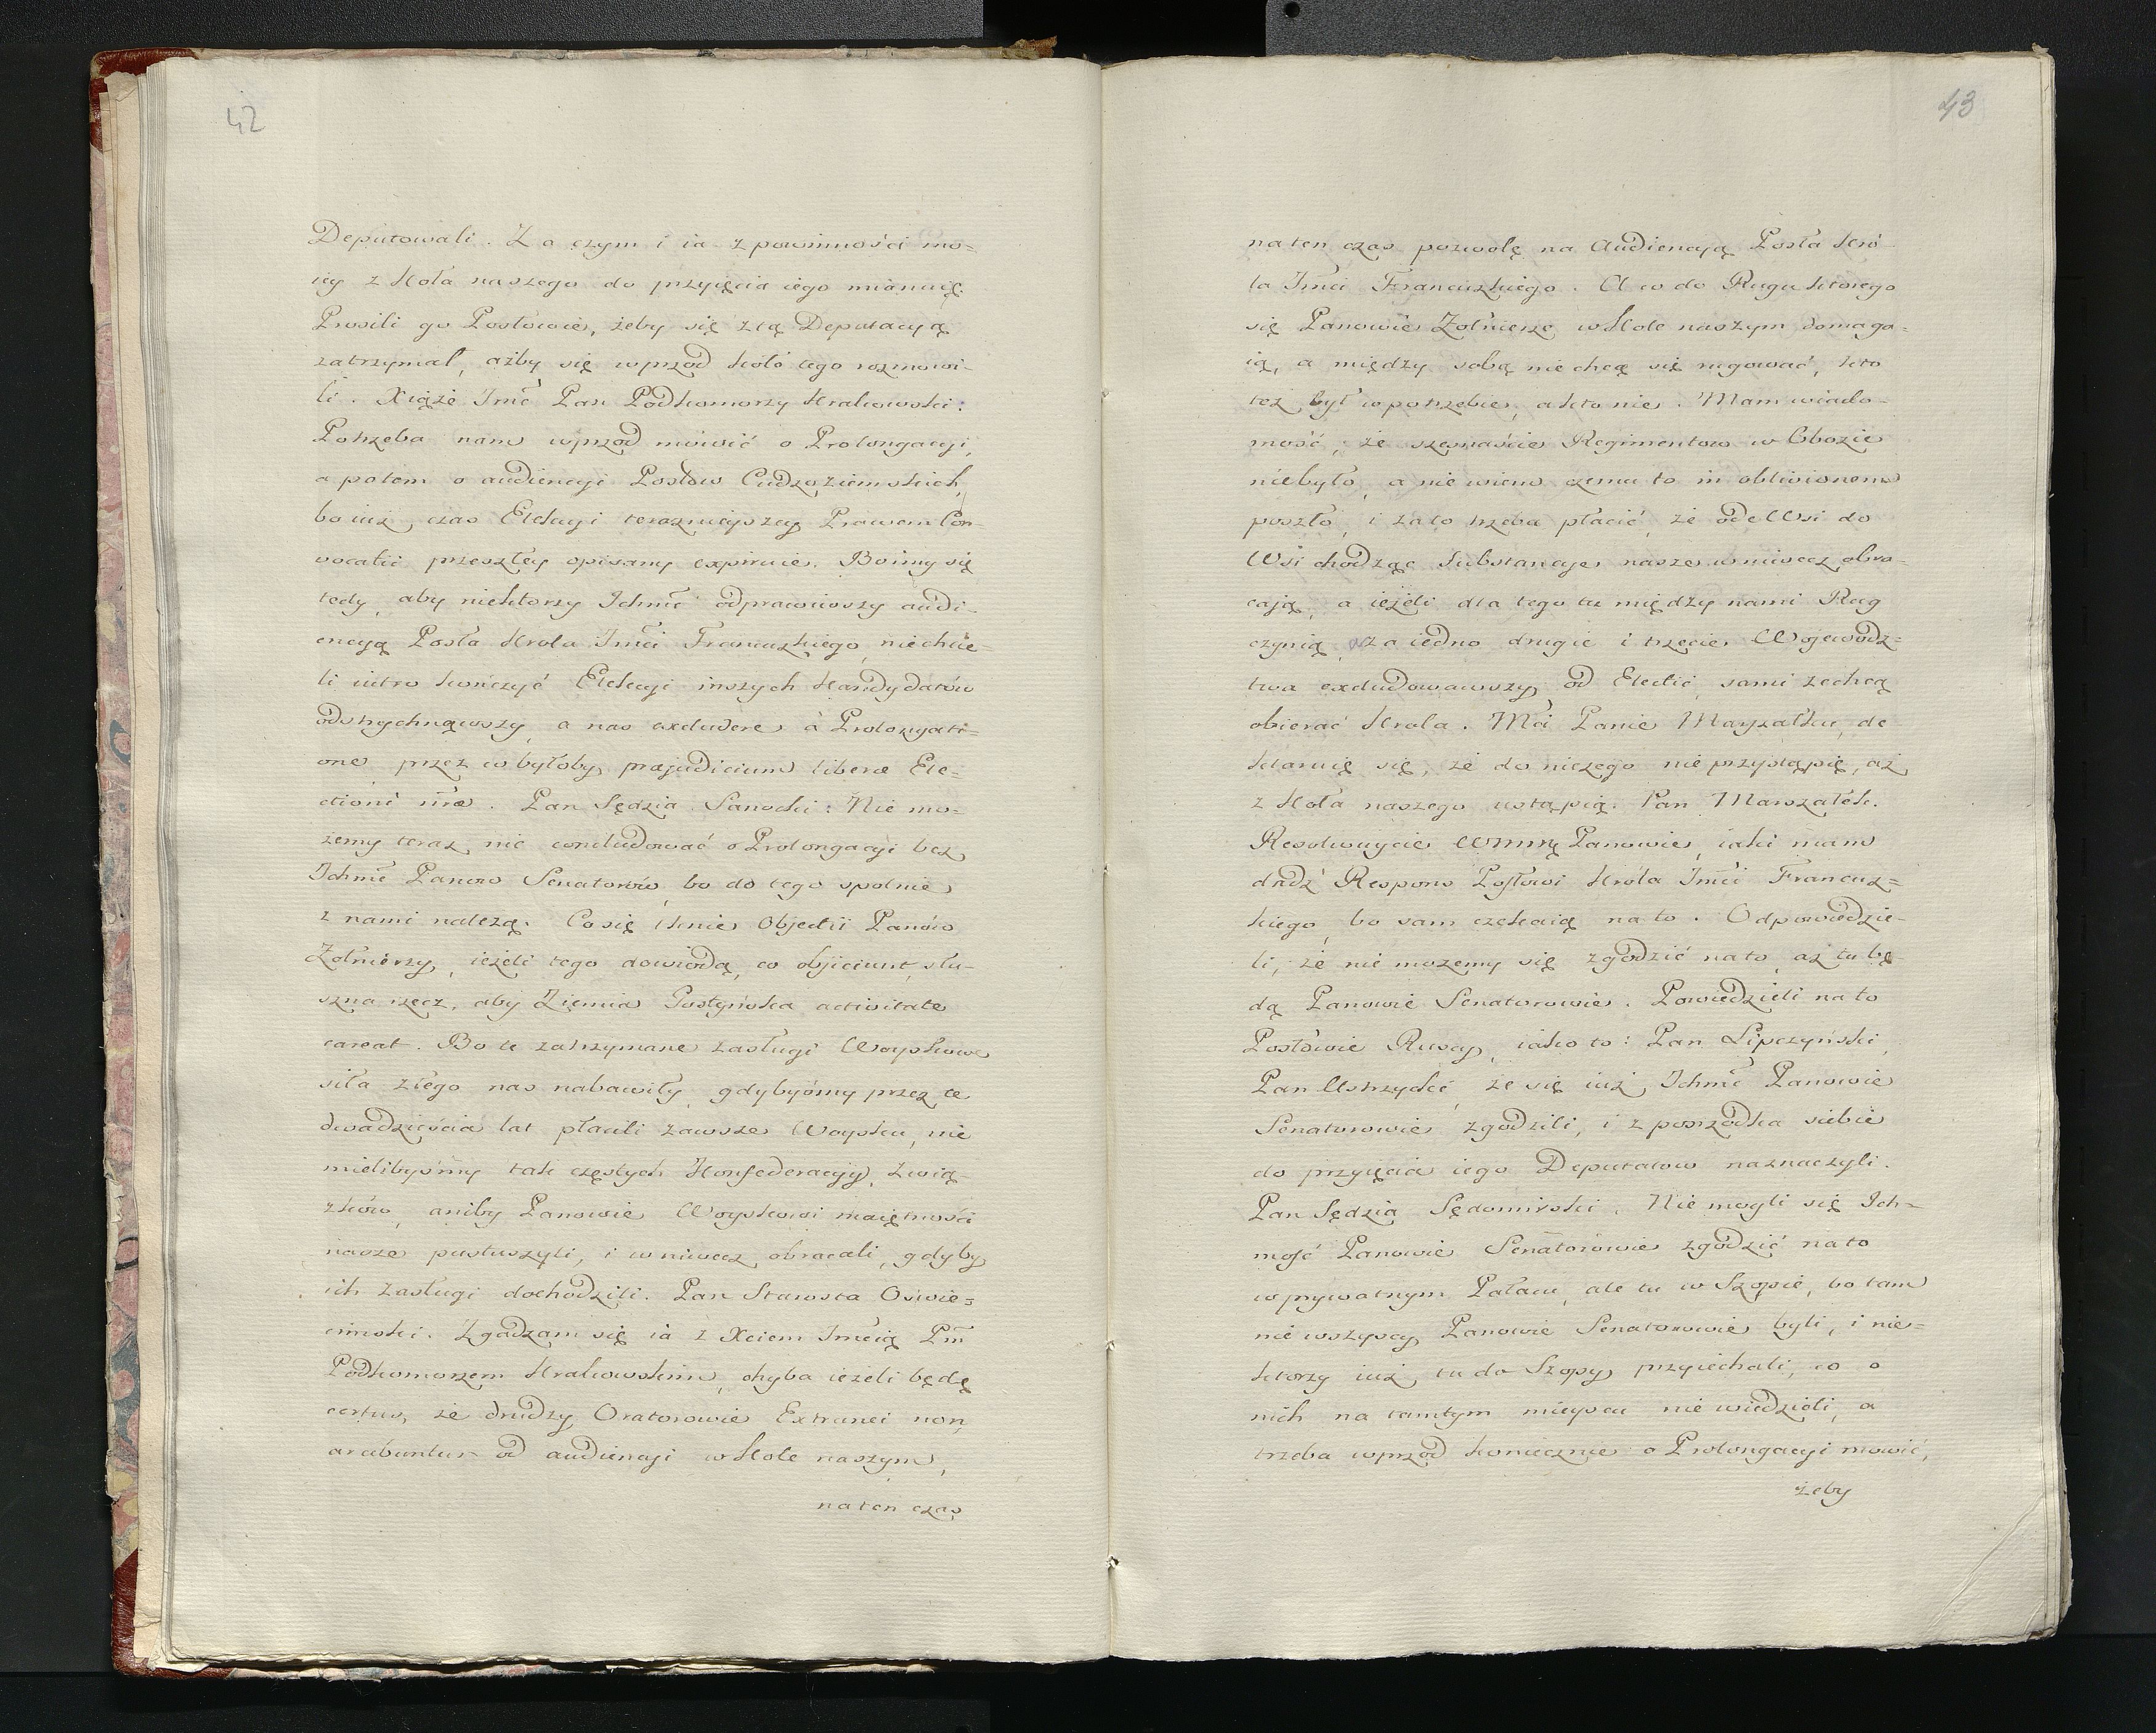 42
Deputowali. Za czym i ia z powinności mo=
iey z Koła naszego do przyięcia iego mianuię.
Prosili go Posłowie, żeby się z tą Deputacyą
zatrzymał, ażby się wprzod koło tego rozmowi-
li. Xiąże Jmć Pan Podkomorzy Krakowski:
Potrzeba nam wprzod mówić o Prolongacyi,
a potem o audiencyi Posłow Cudzoziemskich,
bo iuż czas Elekcyi teraznieyszey Prawem Con-
vocatii przeszłey opisany expiruie. Boimy się
tedy, aby niektorzy Ichmć odprawiwszy audi-
encyą Posła Krola Jmći Francuzkiego, niechcie-
li iutro kończyć Elekcyi inszych Kandydatów
odstrychnąwszy, a nas excludere à Prolongati=
one, przez co byłoby præjudicium liberæ Ele=
ctioni nræ. Pan Sędzia Sanocki: Nie mo=
żemy teraz nic concludować o Prolongacyi bez
Ichmć Panow Senatorów, bo do tego spolnie
z nami należą. Co się tknie Objectii Panów
Zołnierzy, ieżeli tego dowiodą, co objiciunt, słu-
szna rzecz, aby Ziemia Gostyńska activitate
careat. Bo te zatrzymane zasługi Woyskowe
siła złego nas nabawiły, gdybyśmy przez te
dwadzieścia lat płacili zawsze Woysku, nie
mielibyśmy tak częstych Konfederacyy, Zwią-
zków, aniby Panowie Woyskowi maiętności
nasze pustuszyli, i wniwecz obracali, gdyby
ich zasługi dochodzili. Pan Starosta Oswie=
cimski. Zgadzam się ia z Xciem Jmcią Pm
Podkomorzem Krakowskim, chyba ieżeli będę
certus, że drudzy Oratorowie Extranei non
arcebuntur od audiencyi w Kole naszym,
na ten czas
43
na ten czas pozwolę na Audiencyą Posła Kró-
la Jmći Francuzkiego. A co do Rugu ktorego
się Panowie Zołnierze w Kole naszym domaga-
ią, a między sobą nie chcą się rugować, kto
też był w potrzebie, a kto nie. Mam wiado-
mość, że szesnaście Regimentow w Obozie
niebyło, a nie wiem czemu to in oblivionem
poszło, i za to trzeba płacić, że ode Wsi do
Wsi chodząc Substancye nasze wniwecz obra-
cają, a ieżeli dla tego tu między nami Rug
czynią, za iedno drugie i trzecie Wojewodz=
twa excludowawszy od Electii, sami zechcą
obierać Krola. Mći Panie Marszałku, de-
klaruię się, że do niczego nie przystąpię, aż
z Koła naszego ustąpią. Pan Marszałek.
Resolwuycie WMM Panowie, iaki mam
dadź Respons Posłowi Króla Jmći Francuz=
kiego, bo sam czekaią na to. Odpowiedzie-
li, że nie możemy się zgodzić na to, aż tu bę-
dą Panowie Senatorowie. Powiedzieli na to
Posłowie Ruscy, iako to: Pan Lipczyński,
Pan Ustrzycki, że się iuż Ichmć Panowie
Senatorowie zgodzili, i z poszrodka siebie
do przyięcia iego Deputatow naznaczyli.
Pan Sędzia Sędomirski. Nie mogli się Ich=
mość Panowie Senatorowie zgodzić na to
w prywatnym Pałacu, ale tu w Szopie, bo tam
nie wszyscy Panowie Senatorowie byli, i nie=
ktorzy iuż tu do Szopy przyiechali, co o
nich na tamtym mieyscu nie wiedzieli, a
trzeba wprzod koniecznie o Prolongacyi mowić,
żeby